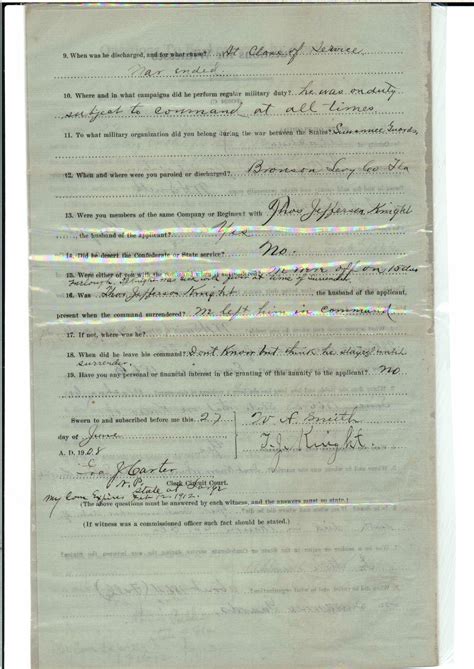 9. When was he discharged, and for what cause? At Close of Service
War ended
10. Where and in what campaigns did he perform regular military duty? he was on duty
subject to command at all times
11. To what military organization did you belong during the war between the States? Suwannee Guards,
12. When and where were you paroled or discharged? Bronson Levy Co Fla
13. Were you members of the same Company or Regiment with Thos Jefferson Knight
the husband of the applicant? Yes
14. Did he desert the Confederate or State service? No.
15. Were either of you with the off on 10 days
furlough, Knight was at time of
16. Was Thos Jefferson Knight the husband of the applicant,
present when the command surrendered? left him in command
17. If not, where was he?
18. When did he leave his command? Dont Know but think he stayed until
surrender.
19. Have you any personal or financial interest in the granting of this annuity to the applicant? No
Sworn to and subscribed before me this 27
day of June
A. D. 1908
W A Smith
T. J. Knight
J Carter
N.P. Clerk Circuit Court.
State at Large
My Com Expires Feb 12 1912.
(The above questions must be answered by each witness, and the answers must so state.)
(If witness was a commissioned officer such fact should be stated.)